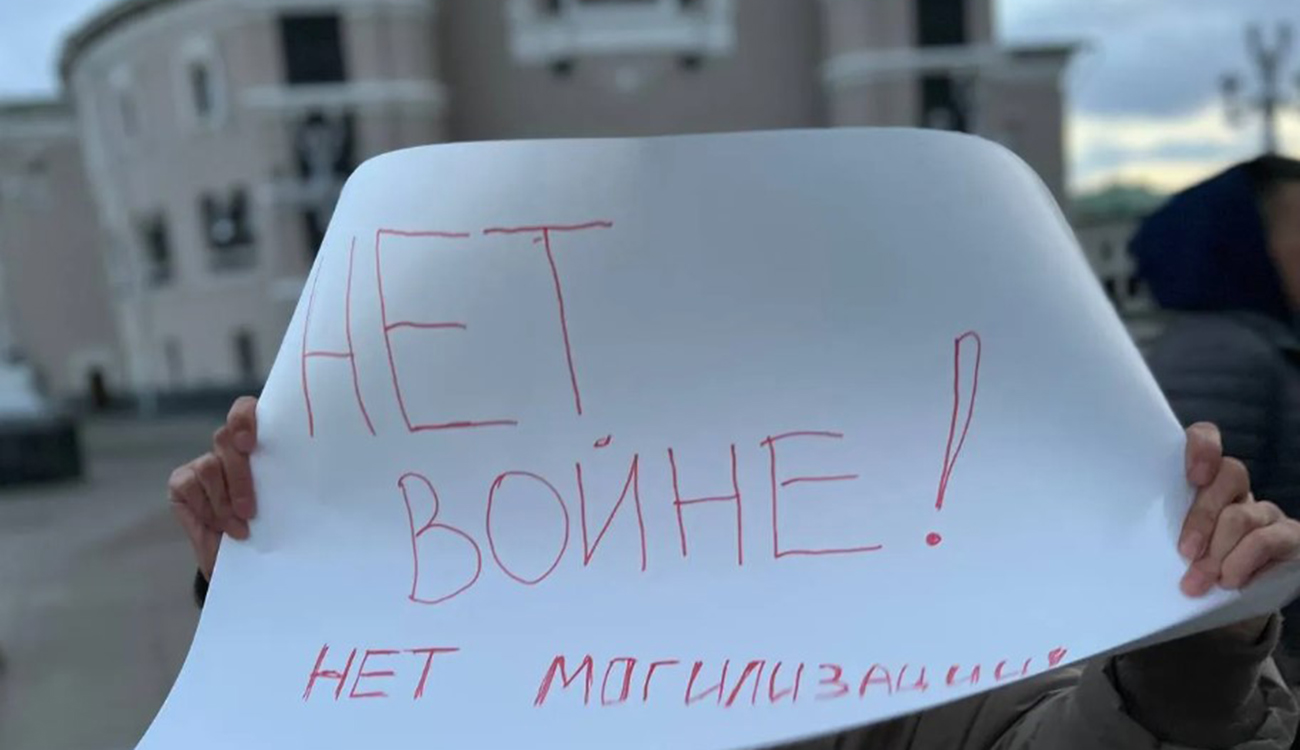 НЕТ
ВОЙНЕ!
НЕТ МОГИЛИЗАЦИИ!